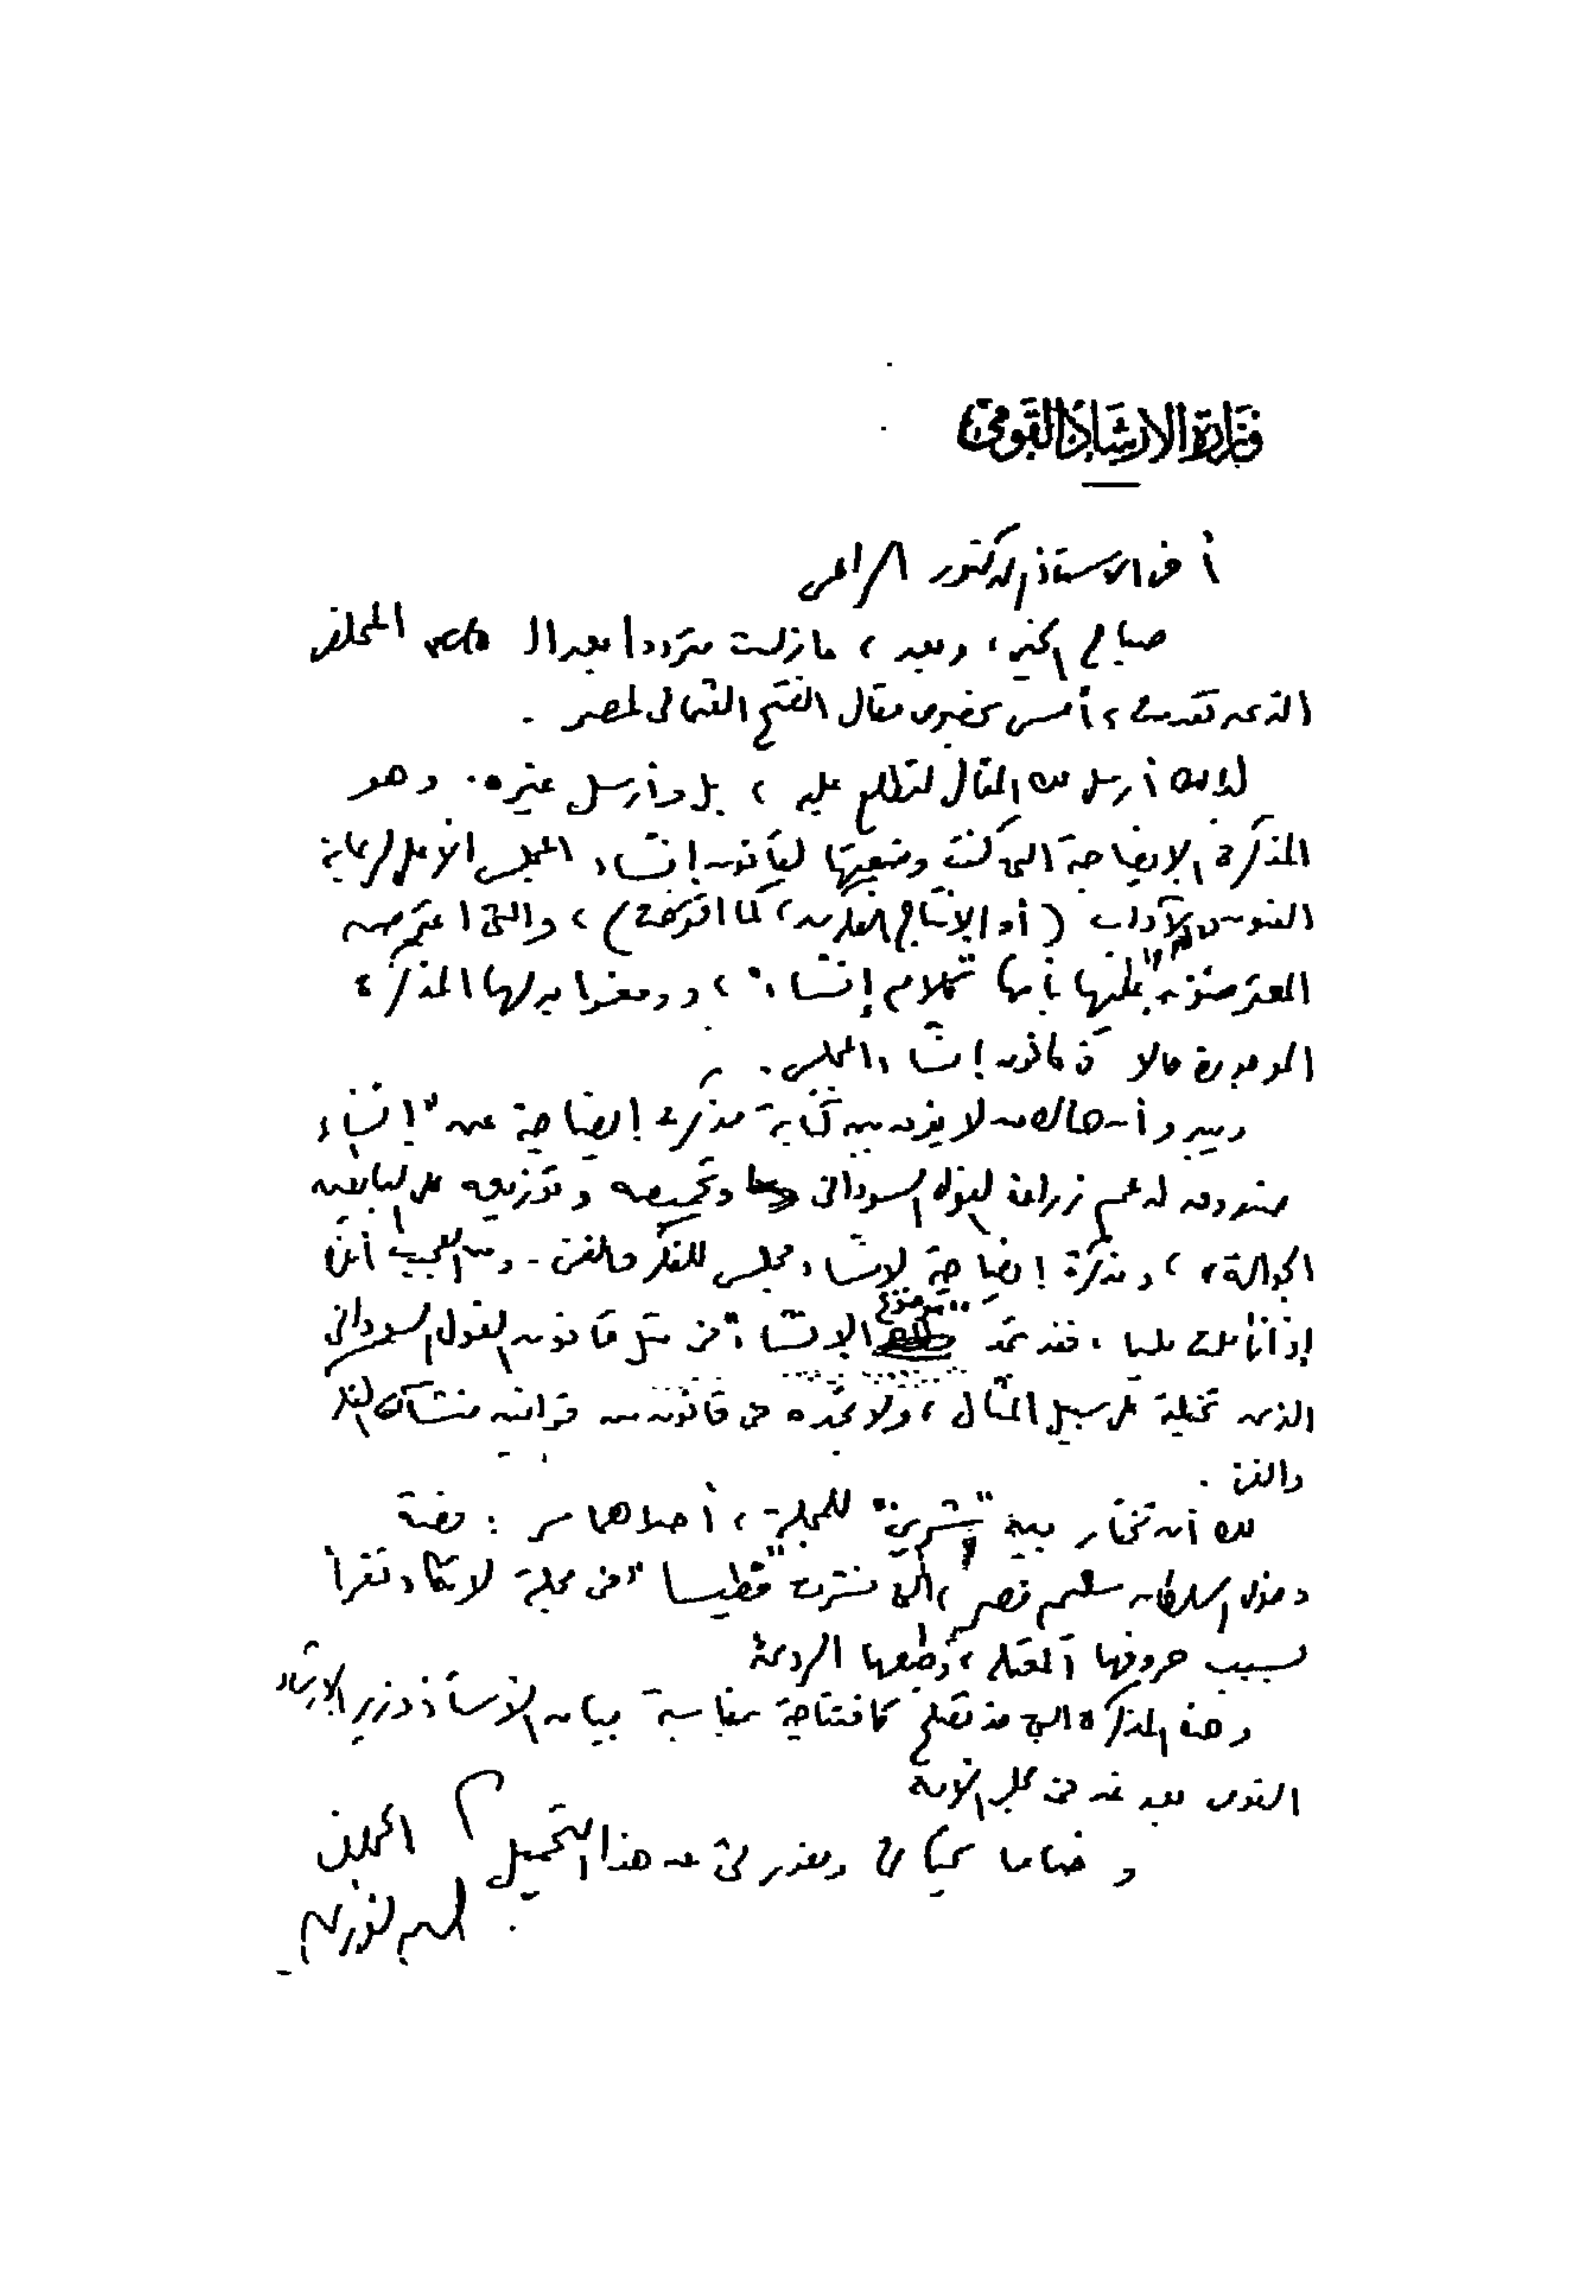 وزارة الارشاد القومي
أخي الأستاذ الدكتور الراعي
صباح الخير، وبعد، مازلت مترددا بعد المخلص
الذي تقدمت به أمس بخصوص مقال الفتح العثماني لمصر .
لذلك أرسل لك المقال لتطلع عليه ، بل وأرسل غيره . وهو
المذكرة الإيضاحية التي كنت وضعتها لقانون إنشاء المجلس الأعلى لرعاية
الفنون والآداب (أو الإنتاج الفكري، كما اقترحت) ، والتي اعترض
المعترضون عليها بأنها "كلام إنشاء" ، ووضعوا بدلها المذكرة
الموجودة حالا في قانون إنشاء المجلس .
ويبدو أن هناك من لا يفرق بين كتابة مذكرة إيضاحية عن "إنشاء
صندوق لدعم زراعة الفول السوداني وتحميصه وتوزيعه على البائعين
الجوالة" ، ومذكرة إيضاحية لإنشاء مجلس للفكر والفن . ومن العجب أنك
إذا تأملت مليا ، فقد تجد "موضوع الإنشاء" في مثل قانون الفول السوداني
الذي تخيلته على سبيل المثال ، ولا تجده في قانون من قوانين منشآت الفكر
والفن .
لك أن تختار بين "شرين" للمجلة ، أحلاهما مر : قصة
دخول السلطان سليم مصر ، التي نشرت "فطيسا" في مجلة لا تكاد تقرأ
بسبب حروفها ، وطبعها الردئ
وهذه المذكرة التي قد تصلح كافتتاحية بمناسبة بيان الأستاذ وزير الإرشاد
القومي بعد غد في مجلس الأمة
وختاما تحياتي ومعذرتي عن هذا التحميل المخلص